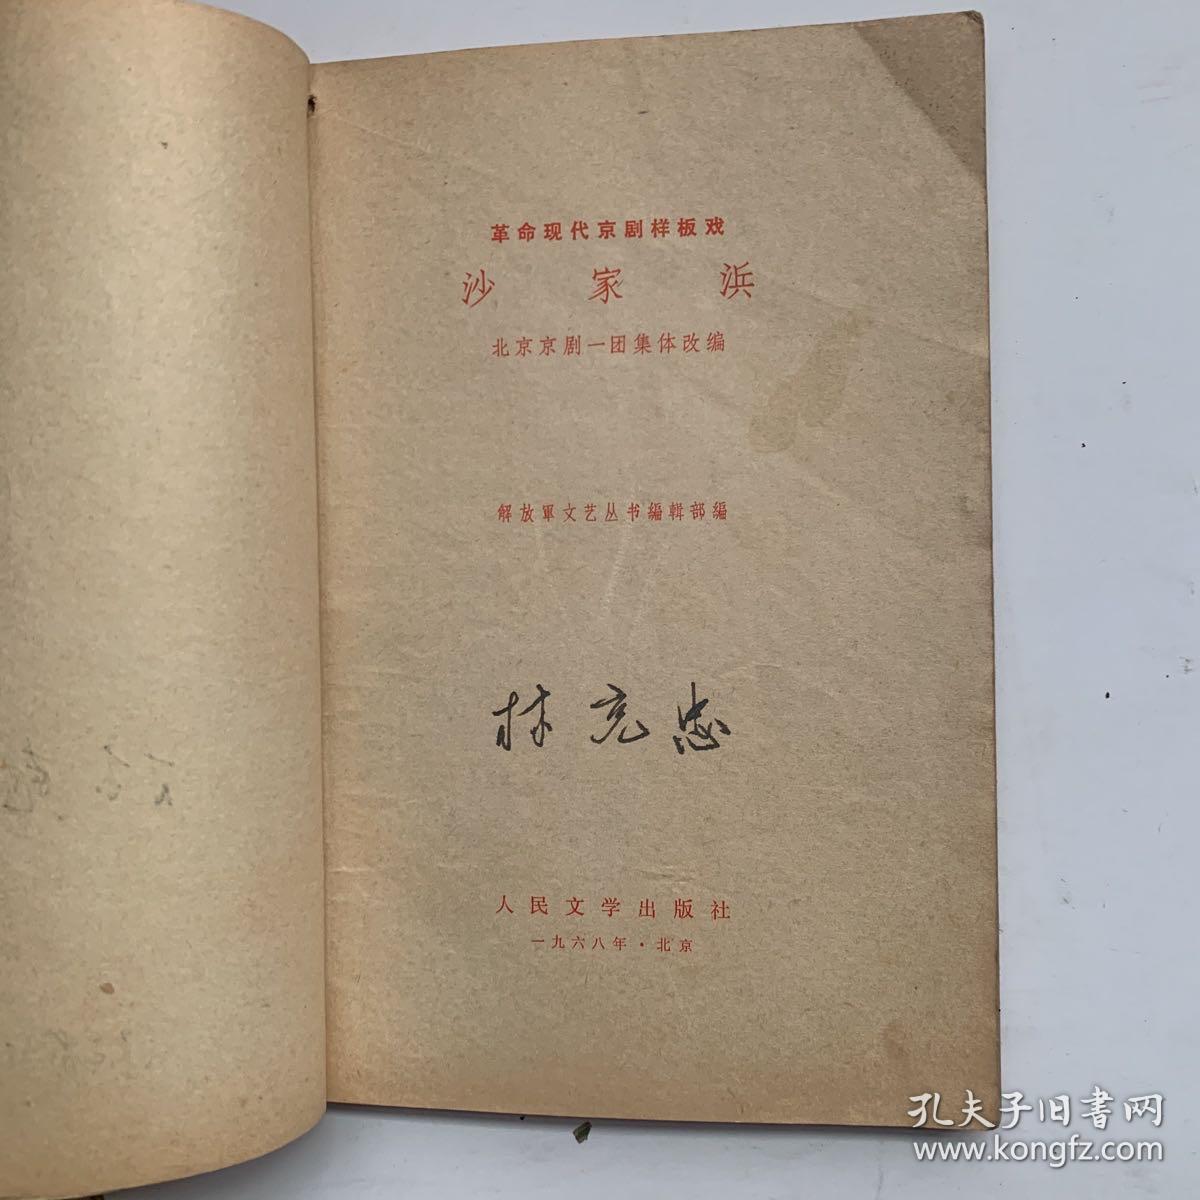 革命现代京剧样板戏
沙家浜
北京京剧一团集体改编
解放軍文艺丛书編輯部編
林充忠
人民文学出版社
一九六八年·北京
孔夫子旧書网
www.kongfz.com